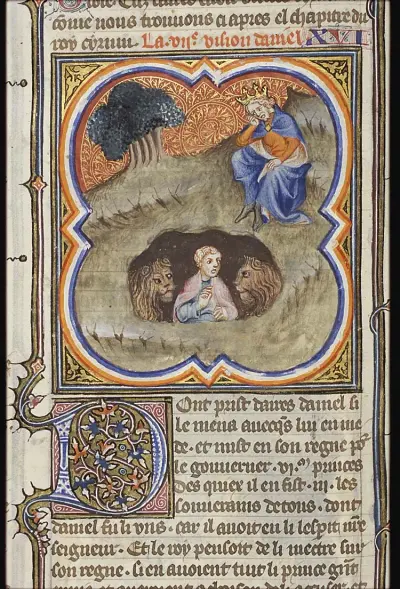 côme nous trouuons ci apres el chapitre du
roy cyrum. La viiᵉ vision daniel XVI
Dont prist daires daniel si
le mena auecques lui en me
de. et mist en son regne por
le gouuerner .vi.ˣˣ princes
des quex il en fist .iii. les
souuerains de tous. dont
daniel fu li uns. car il auoit en li lesprit nre
seigneur. Et le roy pensoit de li mectre sur
son regne. si en auoient tuit li prince grāt